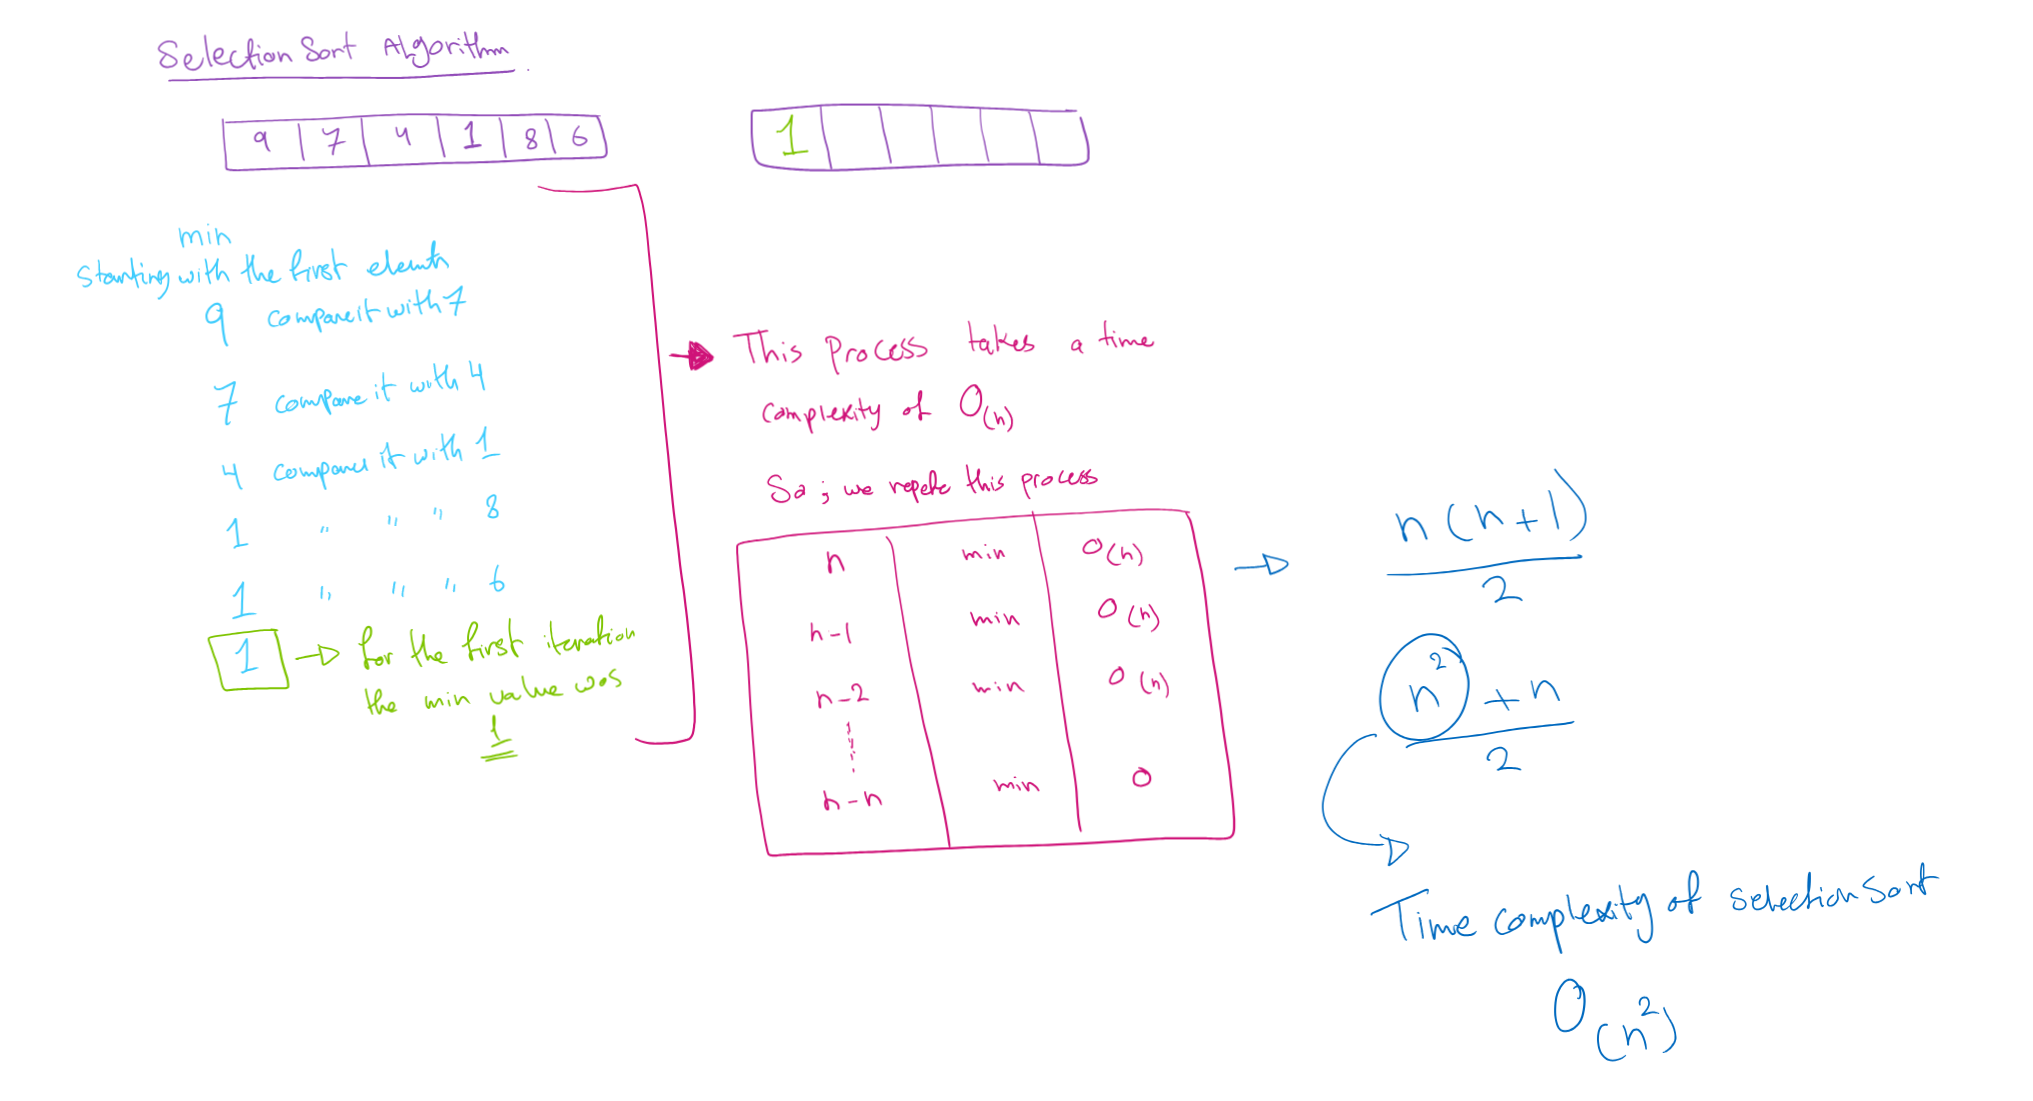 Selection Sort Algorithm
9 7 4 1 8 6
1
min
Starting with the first
9 compare it with 7
7 compare it with 4
4 compare it with 1
1 " " " 8
1 " " " 6
1 → for the first iteration
the min value was
1
This process takes a time
complexity of O(n)
So ; we repete this process
n min O(n)
n-1 min O(n)
n-2 min O(n)
n-n min O
n(n+1)
2
n² + n
2
Time complexity of selection sort
O(n²)